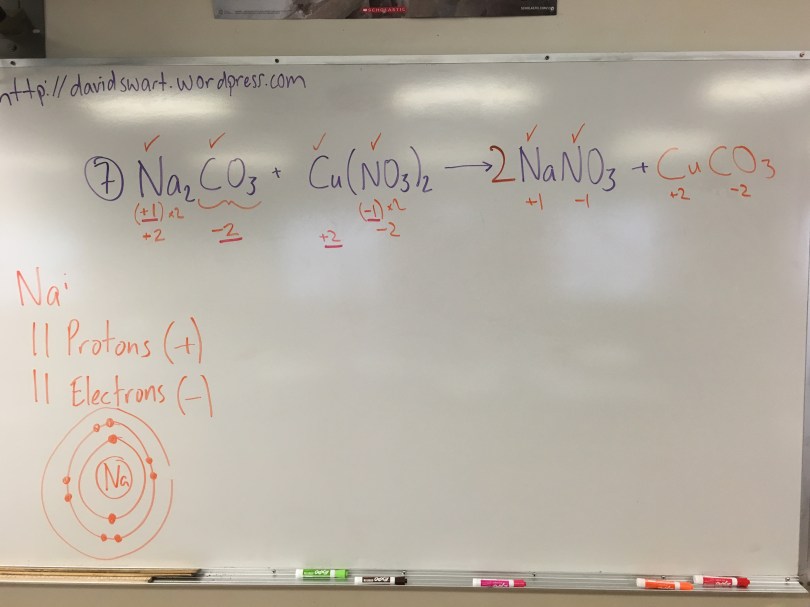 SCHOLASTIC
http://davidswart.wordpress.com
⑦ Na₂CO₃ + Cu(NO₃)₂ → 2NaNO₃ + CuCO₃
(+1)×2 (-1)×2 +1 -1 +2 -2
+2 -2 +2 -2
Na
11 Protons (+)
11 Electrons (-)
Na